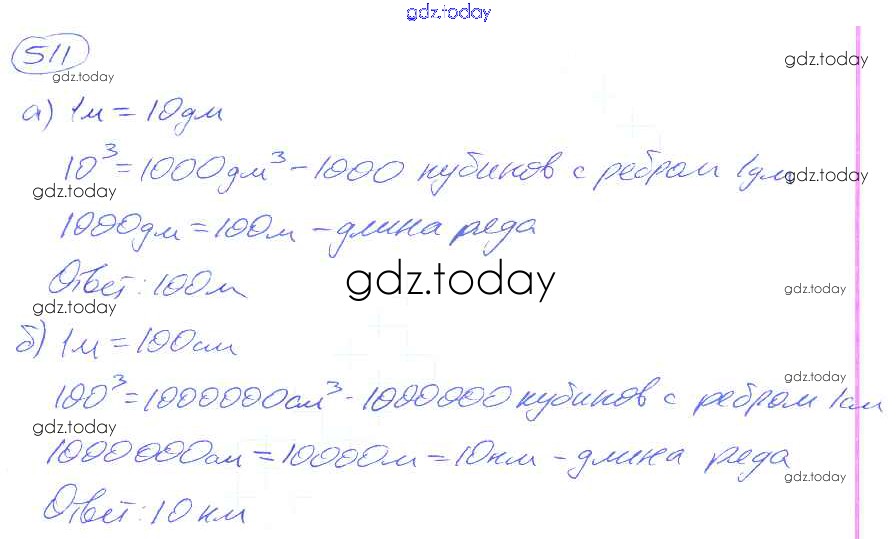 gdz.today
511
gdz.today
gdz.today
а) 1м = 10дм
10³ = 1000дм³ - 1000 кубиков с ребром 1дм
gdz.today
gdz.today
1000дм = 100м - длина ряда
Ответ: 100м
gdz.today
gdz.today
gdz.today
б) 1м = 100см
100³ = 1000000см³ - 1000000 кубиков с ребром 1см
gdz.today
gdz.today
1000000см = 10000м = 10км - длина ряда
gdz.today
Ответ: 10 км